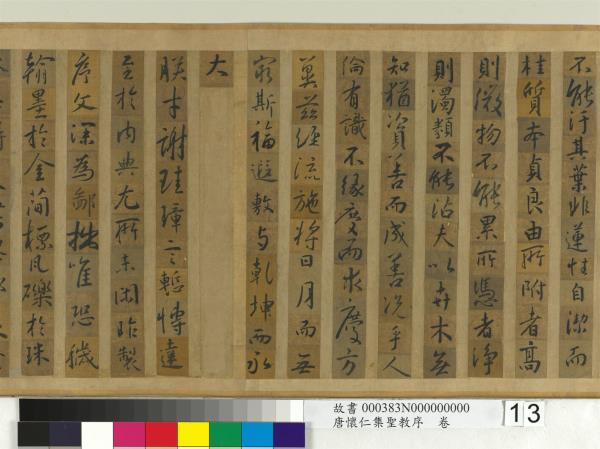 不能汙其葉非蓮性自潔而
桂質本貞良由所附者高
則微物不能累所憑者淨
則濁類不能沾夫以卉木無
知猶資善而成善況乎人
倫有識不緣慶而求慶方
冀茲經流施將日月而無
窮斯福遐敷与乾坤而永
大
朕才謝珪璋言慙博達
至於內典尤所未閑昨製
序文深為鄙拙唯恐穢
翰墨於金簡標瓦礫於珠
故書 000383N000000000
唐懷仁集聖教序 卷
13